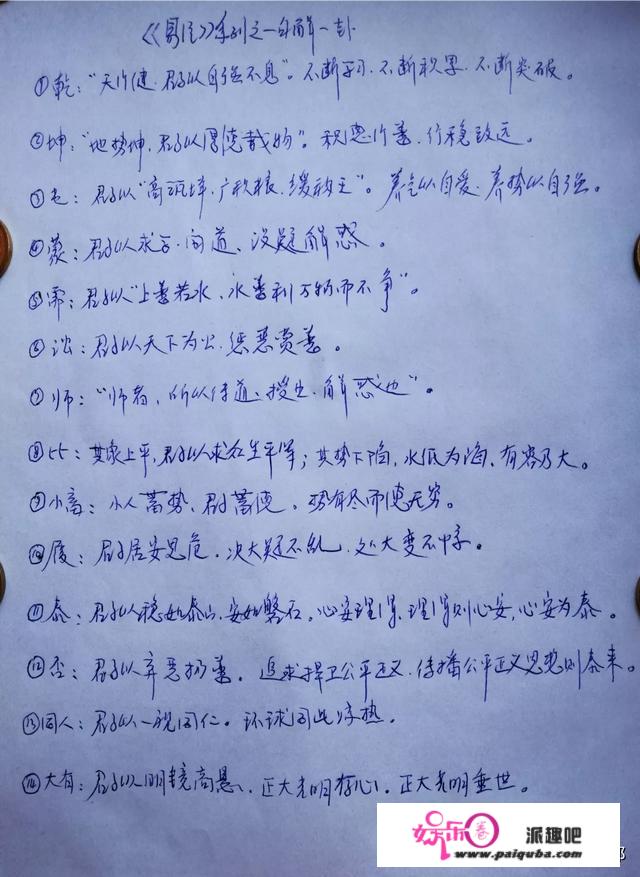 《易经》系列之一句解一卦
①乾：“天行健，君子以自强不息”。不断学习、不断积累、不断突破。
②坤：“地势坤，君子以厚德载物”。积德行善，行稳致远。
③屯：君子以“高筑墙、广积粮、缓称王”。养气以自爱、养势以自强。
④蒙：君子以求学、问道、没疑解惑。
⑤需：君子以“上善若水，水善利万物而不争”。
⑥讼：君子以天下为公、惩恶赏善。
⑦师：“师者，所以传道、授业、解惑也”。
⑧比：其象上平，君子以求众生平等；其势下陷，水低为海，有容乃大。
⑨小畜：小人蓄势、君子蓄德，势有尽而德无穷。
⑩履：君子居安思危，决大疑不乱，处大变不惊。
⑪泰：君子以稳如泰山、安如磐石。心安理得、理得则心安，心安为泰。
⑫否：君子以弃恶扬善。追求捍卫公平正义、传播公平正义思想则泰来。
⑬同人：君子以一视同仁。环球同此凉热。
⑭大有：君子以明镜高悬、正大光明存心、正大光明垂世。
娱乐圈 派趣吧
www.paiquba.com